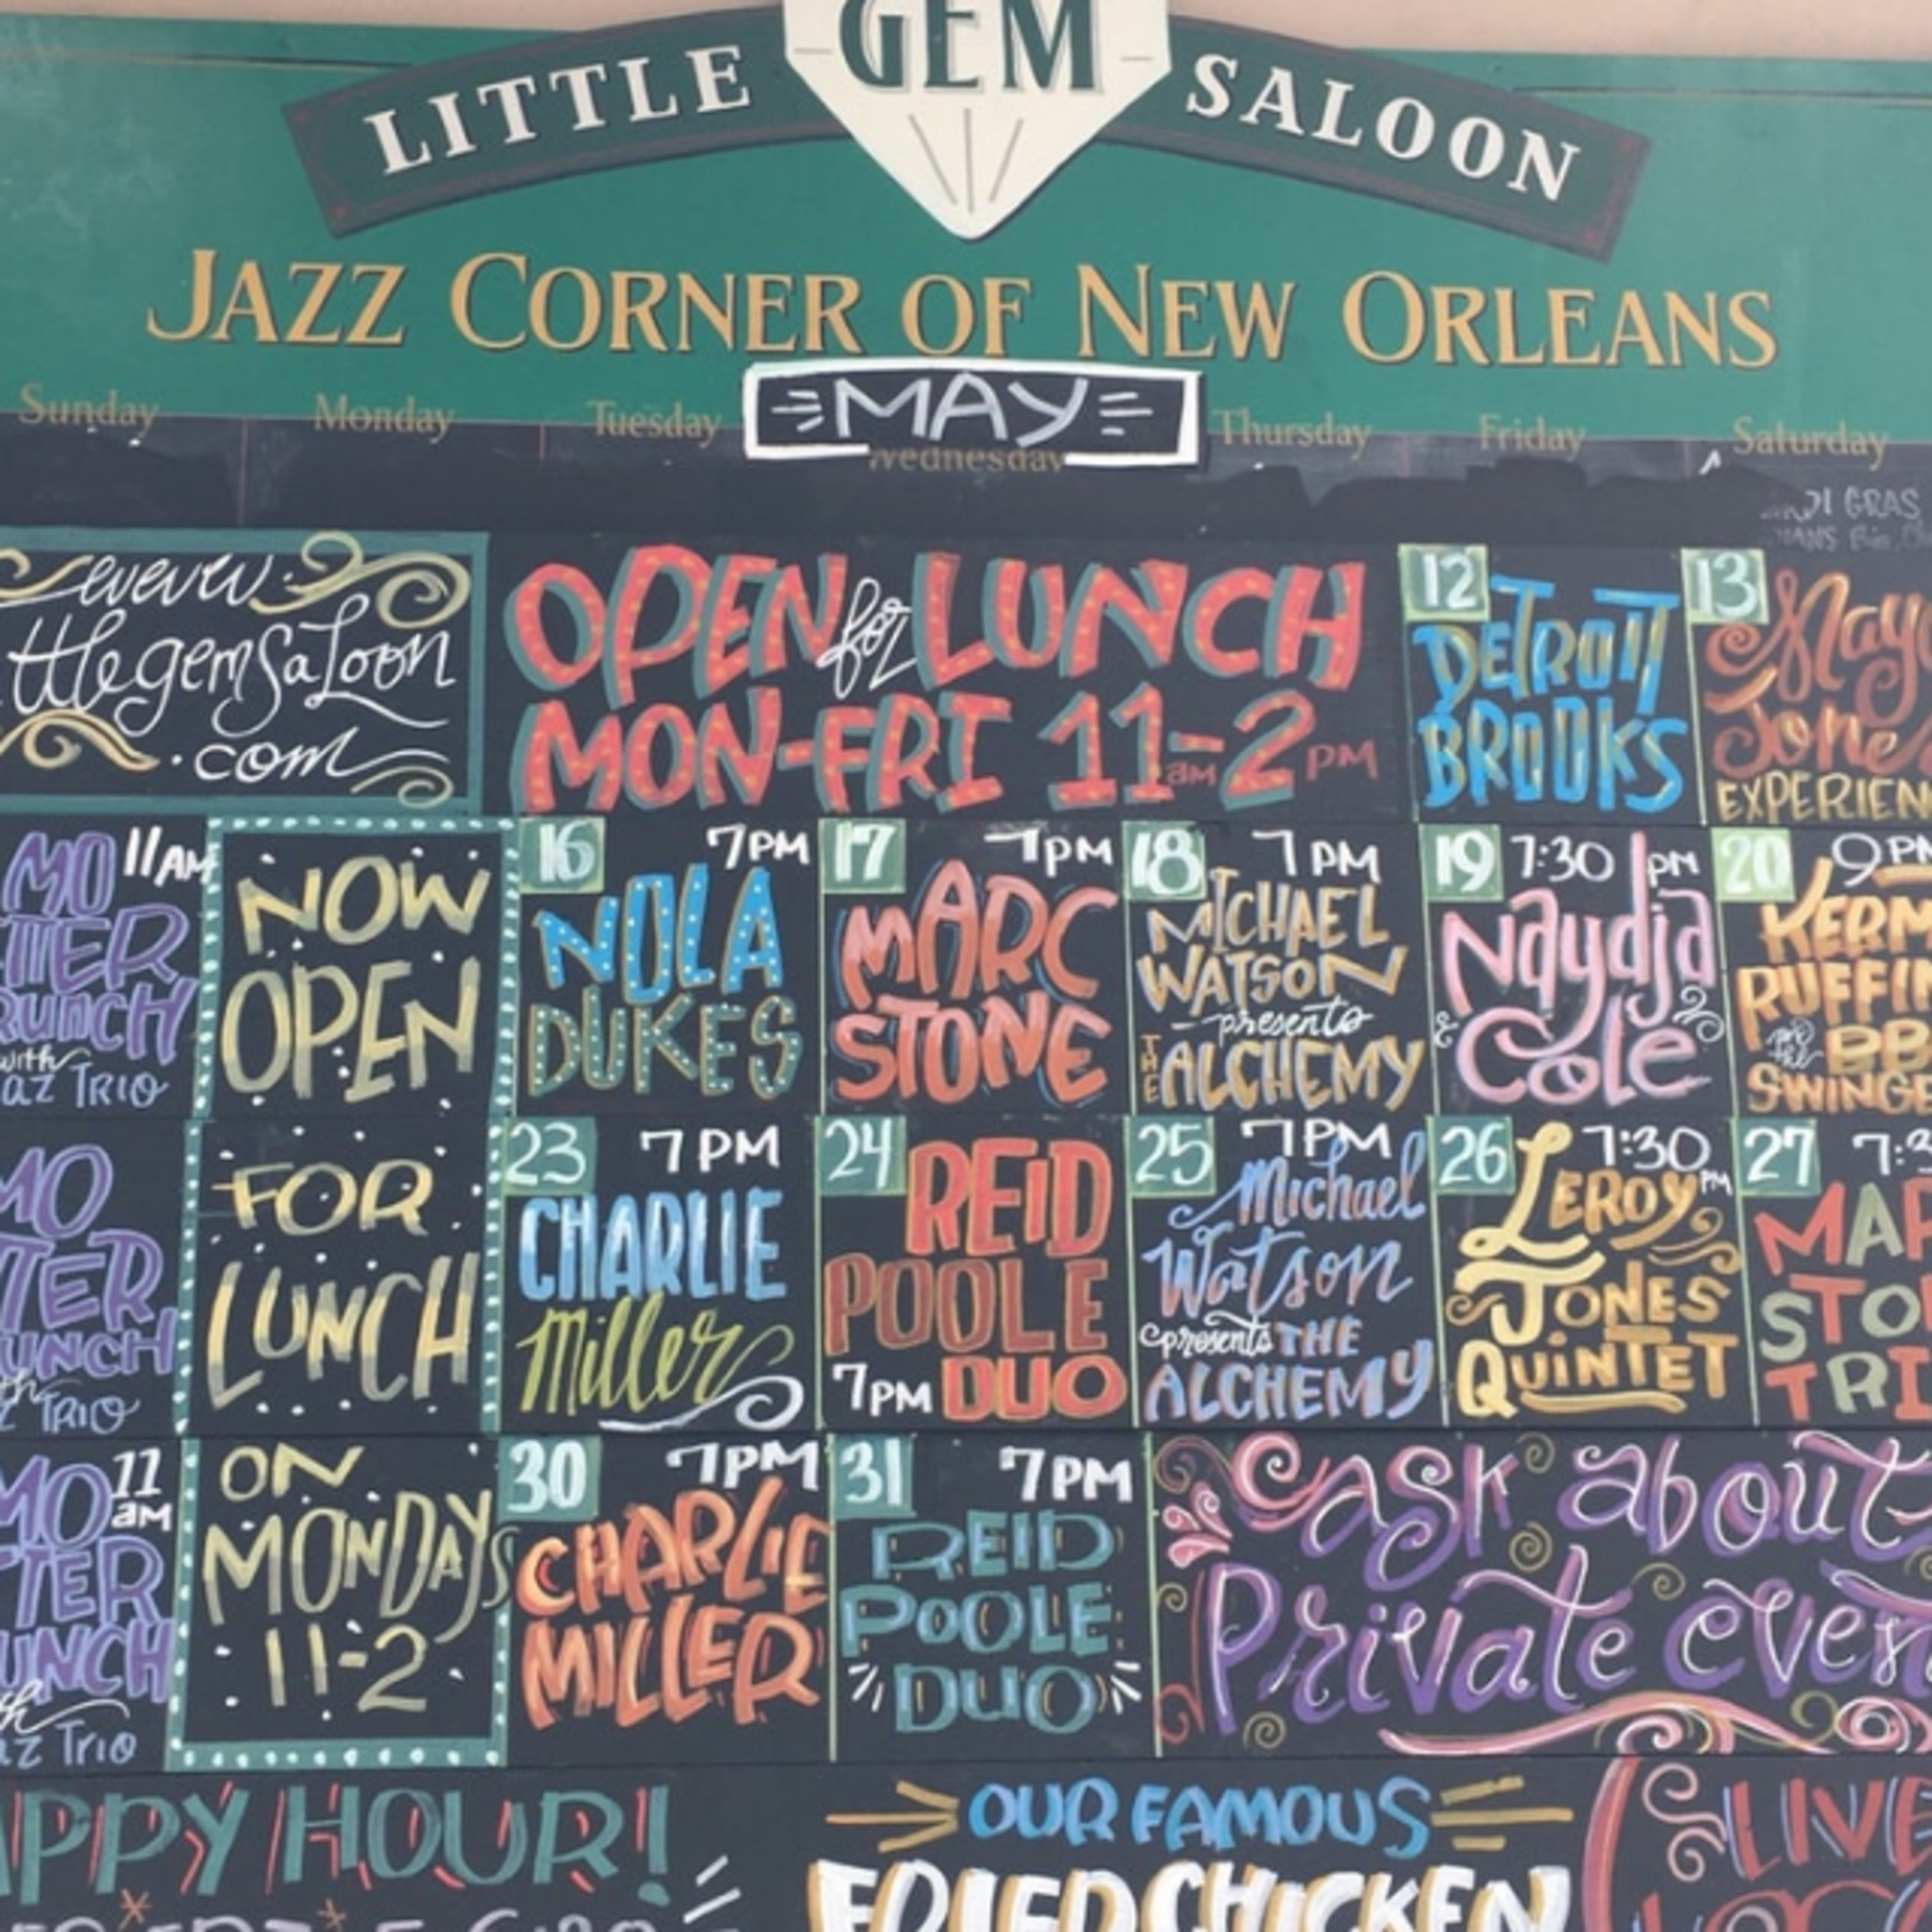 LITTLE GEM SALOON
JAZZ CORNER OF NEW ORLEANS
MAY
Sunday Monday Tuesday Wednesday Thursday Friday Saturday
GRAS
ttlegemsaloon
.com
OPEN for LUNCH
MON-FRI 11am-2PM
12
DETROIT
BROOKS
13
EXPERIEN
MO 11AM
TTER
RUNCH
with
az TRIO
NOW
OPEN
16 7PM
NOLA
DUKES
17 7PM
MARC
STONE
18 7PM
MICHAEL
WATSON
presents
THE ALCHEMY
19 7:30 PM
Naydja
Cole
20 9PM
KERM
RUFFIN
BB
SWINGE
MO
TTER
UNCH
TRIO
FOR
LUNCH
23 7PM
CHARLIE
Miller
24 REID
POOLE
7PM DUO
25 7PM
Michael
Watson
presents THE
ALCHEMY
26 7:30 PM
LEROY
JONES
QUINTET
27 7:3
MAR
STO
TRI
MO 11 am
TTER
UNCH
th
az Trio
ON
MONDAYS
11-2
30 7PM
CHARLIE
MILLER
31 7PM
REID
POOLE
DUO
ask about
Private even
APPY HOUR!
OUR FAMOUS
FRIED CHICKEN
LIVE